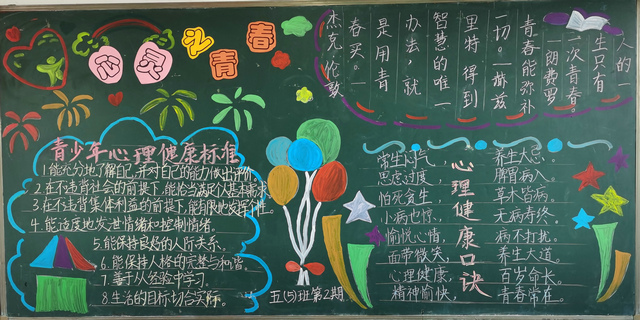 心灵之青春
人的一
生只有
一次青春
—朗费罗
青春能弥补
一切。—赫兹
里特 得到
智慧的唯一
办法,就
是用青
春买。—
杰克·伦敦
青少年心理健康标准
1.能充分地了解自己,并对自己的能力做出评价
2.在不违背社会的前提下,能恰当满足个人基本需求
3.在不违背集体利益的前提下,能有限地发挥个性。
4.能适度地发泄情绪和控制情绪。
5.能保持良好的人际关系。
6.能保持人格的完整与和谐。
7.善于从经验中学习。
8.生活的目标切合实际。
五(5)班第2期
心理健康口诀
常生闷气, 养生大忌。
思虑过度, 脾胃病入。
怕死贪生, 草木皆病。
小病也惊, 无病寿终。
愉悦心情, 病不打扰。
面带微笑, 养生大道。
心理健康, 百岁命长。
精神愉快, 青春常在。